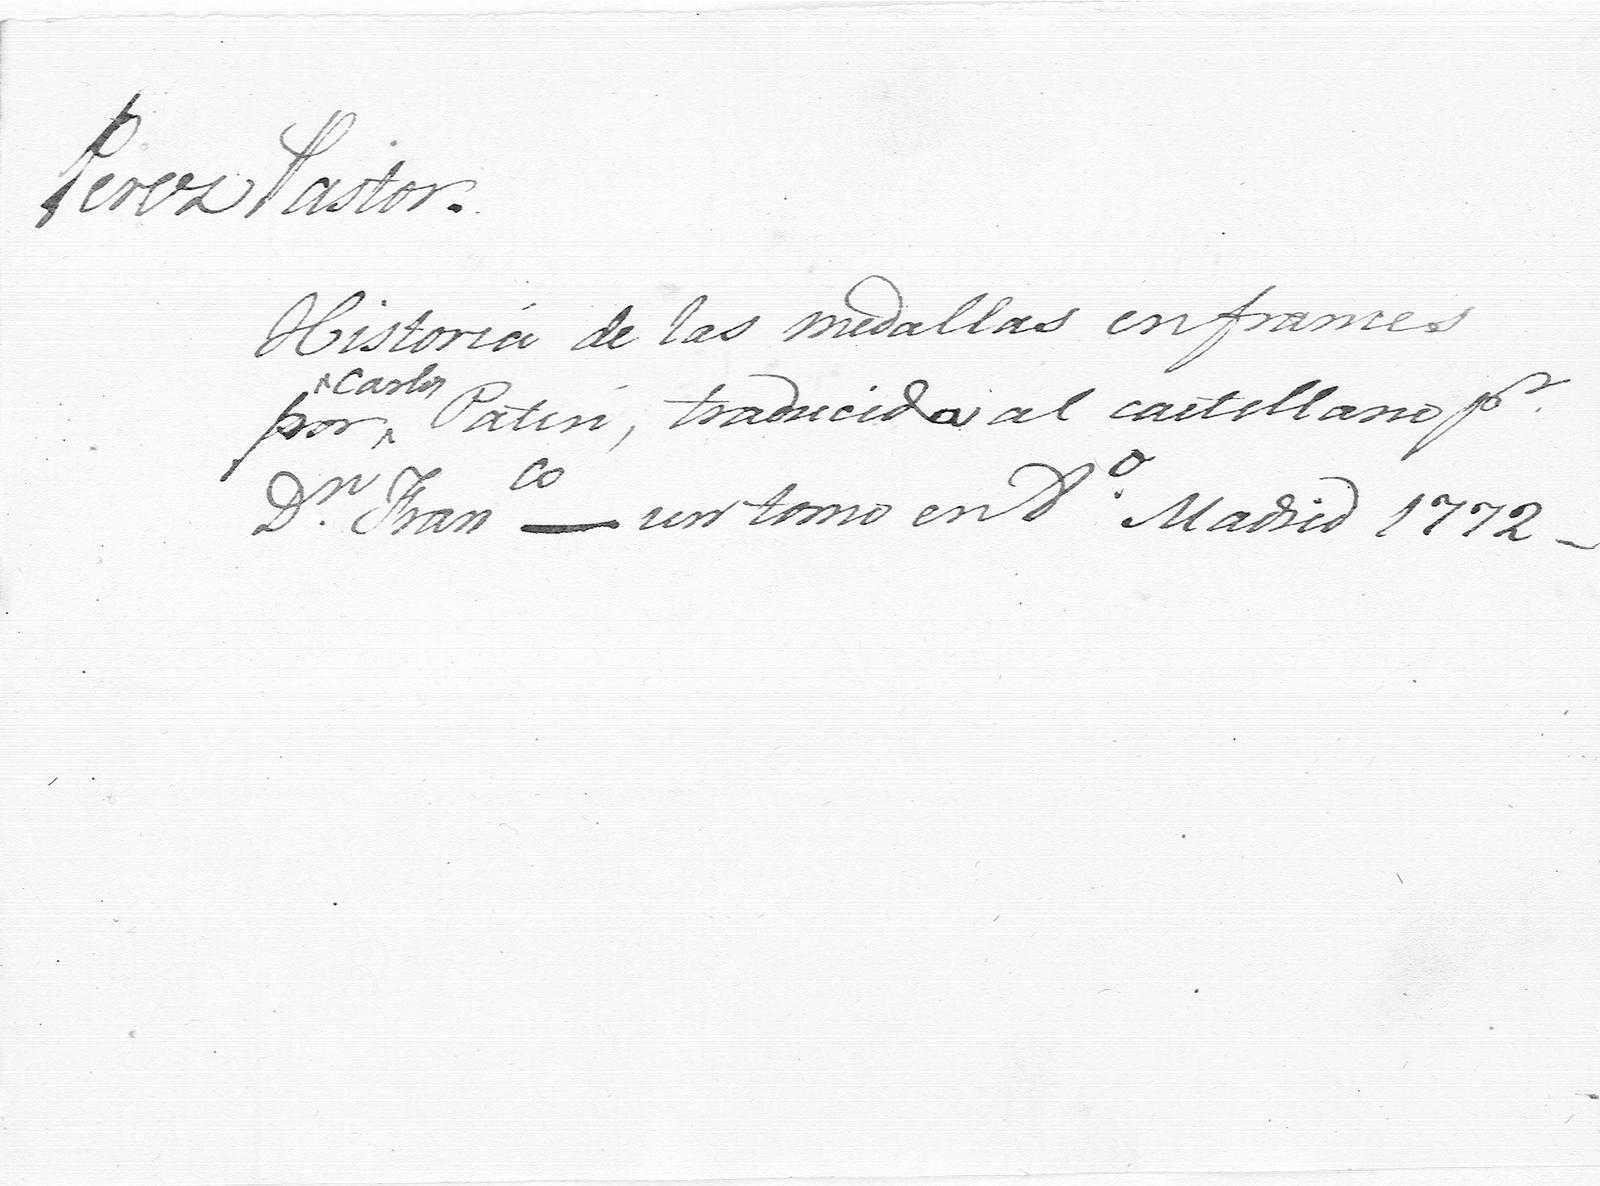 Perez Pastor.
Historia de las medallas en frances
por ^Carlos Patin, traducida al castellano pr.
Dn. Franco — un tomo en 8o. Madrid 1772_